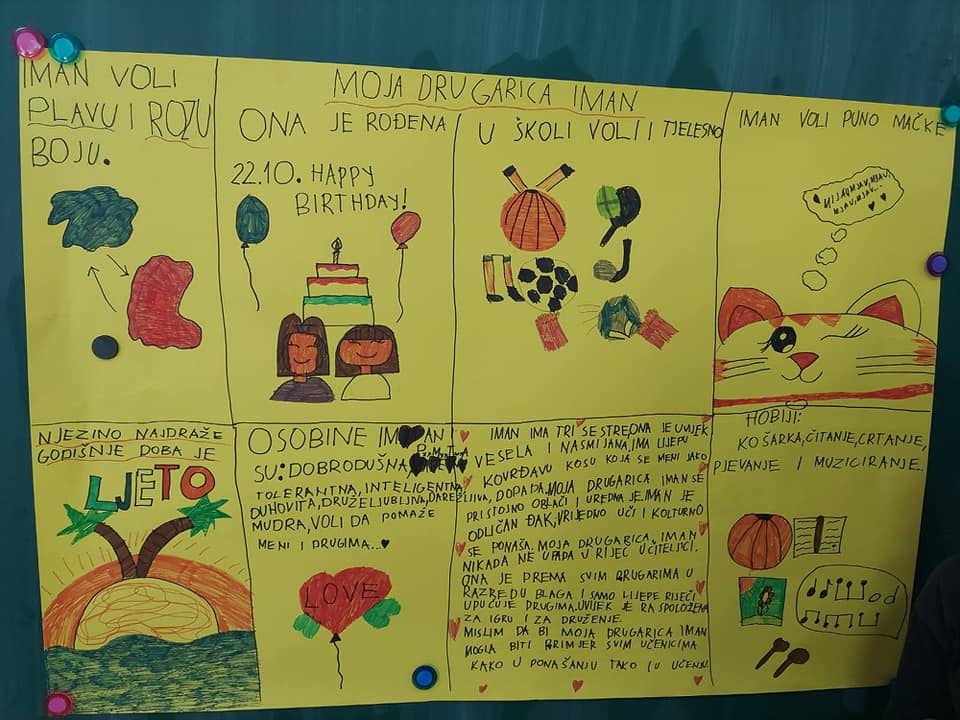 MOJA DRUGARICA IMAN
IMAN VOLI
PLAVU I ROZU
BOJU.
ONA JE ROĐENA
22.10. HAPPY
BIRTHDAY!
U ŠKOLI VOLI I TJELESNO
IMAN VOLI PUNO MAČKE
MIJAU,MJAU,MJAU,
MJAU,MJAV...
NJEZINO NAJDRAŽE
GODIŠNJE DOBA JE
LJETO
OSOBINE IMAN
SU: DOBRODUŠNA,
TOLERANTNA, INTELIGENTNA,
DUHOVITA, DRUŽELJUBLJIVA, DAREŽLJIVA,
MUDRA, VOLI DA POMAŽE
MENI I DRUGIMA...
LOVE
IMAN IMA TRI SESTRE ONA JE UVIJEK
VESELA I NASMIJANA, IMA LIJEPU
KOVRDŽAVU KOSU KOJA SE MENI JAKO
DOPADA. MOJA DRUGARICA IMAN SE
PRISTOJNO OBLAČI I UREDNA JE. IMAN JE
ODLIČAN ĐAK, VRIJEDNO UČI I KOLTURNO
SE PONAŠA. MOJA DRUGARICA IMAN
NIKADA NE UPADA U RIJEČ UČITELJICI.
ONA JE PREMA SVIM DRUGARIMA U
RAZREDU BLAGA I SAMO LIJEPE RIJEČI
UPUĆUJE DRUGIMA. UVIJEK JE RASPOLOŽENA
ZA IGRU I ZA DRUŽENJE.
MISLIM DA BI MOJA DRUGARICA IMAN
MOGLA BITI PRIMJER SVIM UČENICIMA
KAKO U PONAŠANJU TAKO I U UČENJU.
HOBIJI:
KOŠARKA, ČITANJE, CRTANJE,
PJEVANJE I MUZICIRANJE...